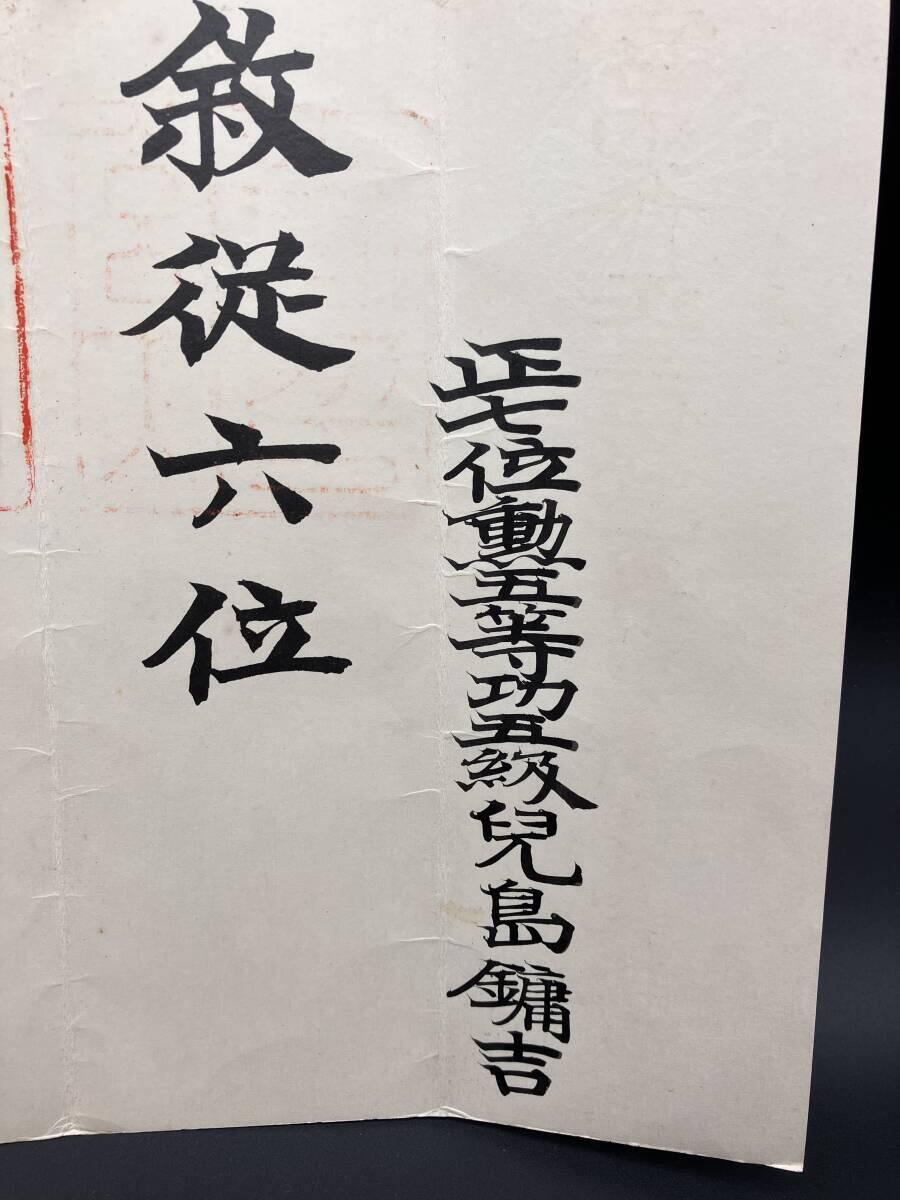 正七位勳五等功五級兒島鏞吉
敘從六位